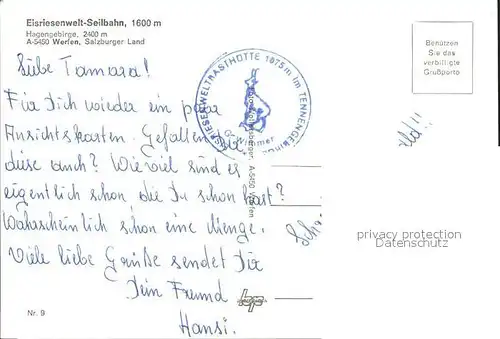 Eisriesenwelt-Seilbahn, 1600 m
Hagengebirge, 2400 m
A-5450 Werfen, Salzburger Land
Benützen
Sie das
verbilligte
Grußporto
EISRIESENWELTRASTHÜTTE 1075 m im TENNENGEBIRGE
Liebe Tamara!
Für Dich wieder ein paar
Ansichtskarten. Gefallen Dir
diese auch? Wie viel sind es
eigentlich schon, die Du schon hast?
Wahrscheinlich schon eine Menge.
Viele liebe Grüße sendet Dir
Dein Freund
Hansi.
A-5450 Werfen
privacy protection
Datenschutz
Nr. 9